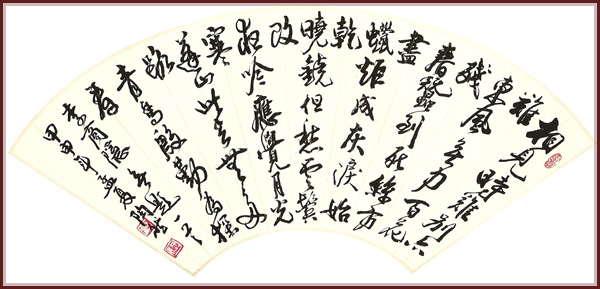 相見時難別亦
難
東風無力百花
殘
春蠶到死絲方
盡
蠟炬成灰淚始
乾
曉鏡但愁雲鬢
改
夜吟應覺月光
寒
蓬山此去無多
路
青鳥殷勤為探
看
李商隱無題
甲申年夏